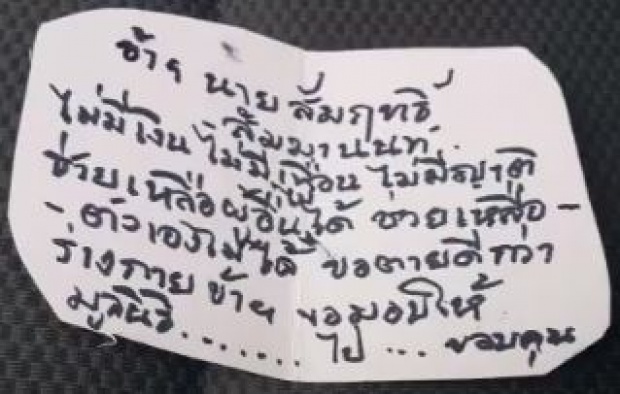 ข้าฯ นายสัมฤทธิ์
สัมมานนท์
ไม่มีเงิน ไม่มีเพื่อน ไม่มีญาติ
ช่วยเหลือผู้อื่นได้ ช่วยเหลือ-
- ตัวเองไม่ได้ ขอตายดีกว่า
ร่างกายข้าฯ ขอมอบให้
มูลนิธิ....... ไป ... ขอบคุณ